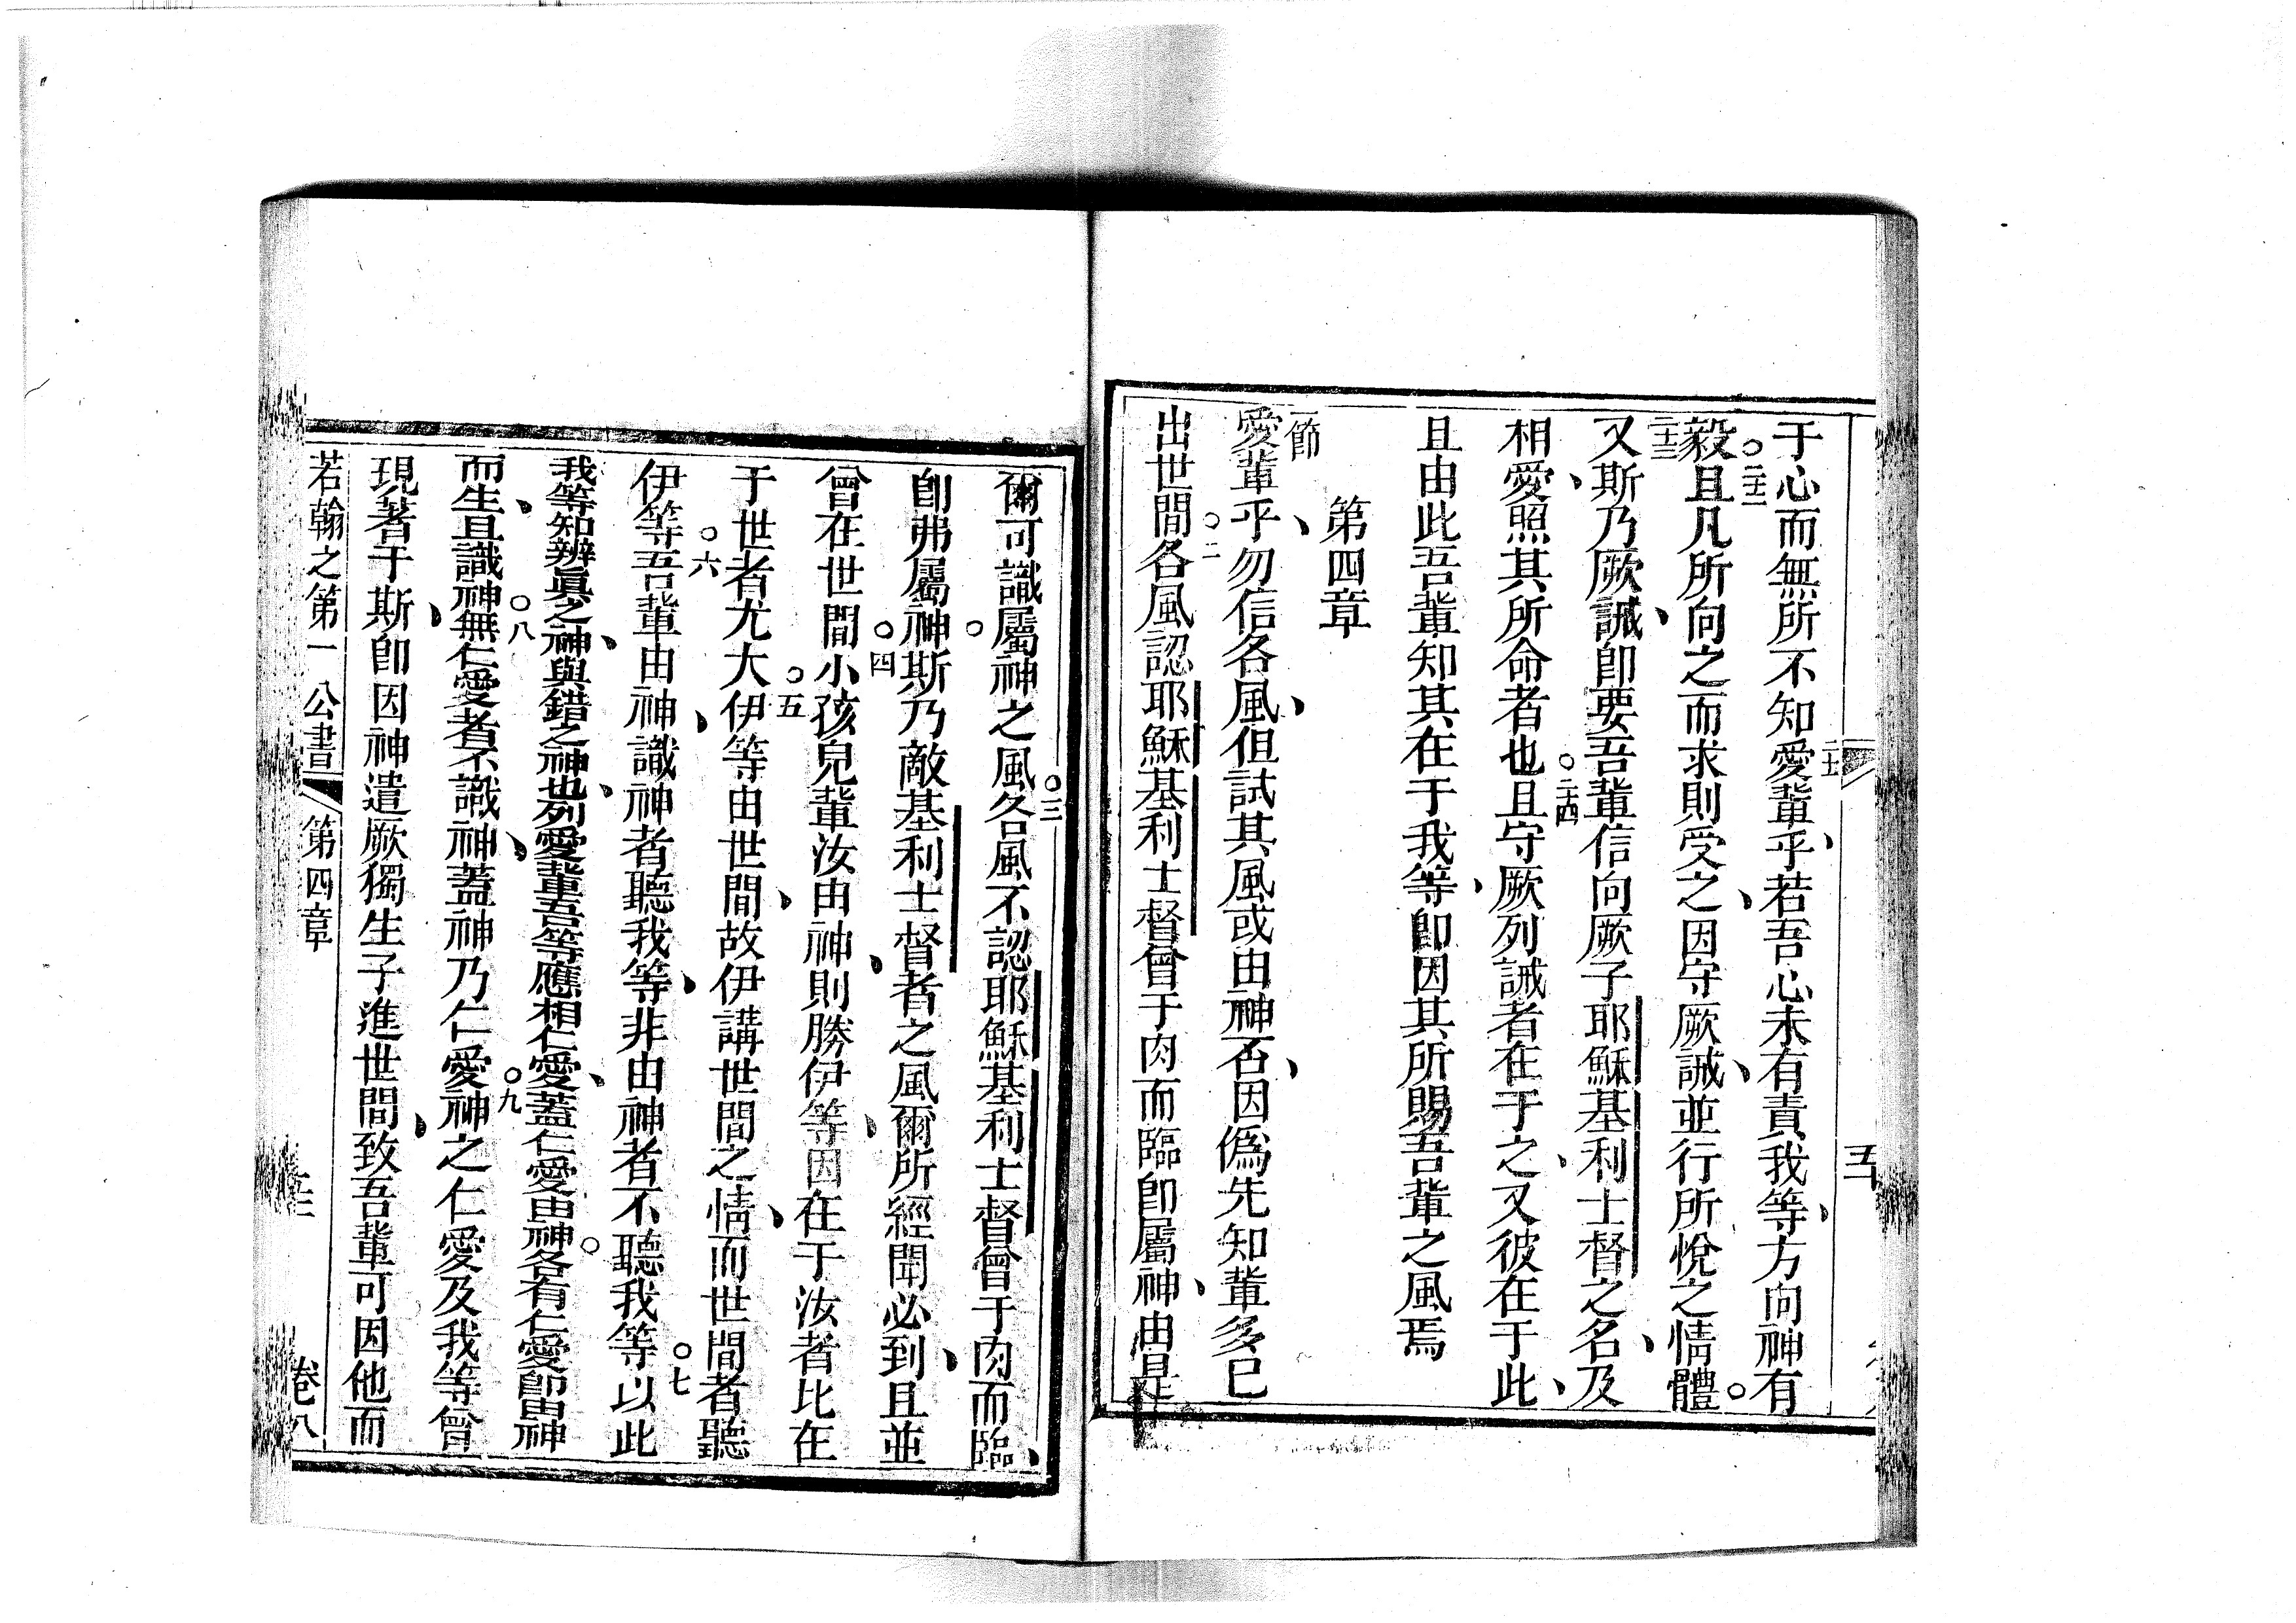 于心而無所不知愛輩乎若吾心未有責我等方向神有
毅且凡所向之而求則受之因守厥誡並行所悅之情體
又斯乃厥誡卽要吾輩信向厥子耶穌基利士督之名及
相愛照其所命者也且守厥列誡者在于之又彼在于此
且由此吾輩知其在于我等卽因其所賜吾輩之風焉
第四章
一節
愛輩乎勿信各風但試其風或由神否因僞先知輩多已
出世間各風認耶穌基利士督曾于肉而臨卽屬神由是
爾可識屬神之風各風不認耶穌基利士督曾于肉而臨
卽弗屬神斯乃敵基利士督者之風爾所經聞必到且並
曾在世間小孩兒輩汝由神則勝伊等因在于汝者比在
于世者尤大伊等由世間故伊講世間之情而世間者聽
伊等吾輩由神識神者聽我等非由神者不聽我等以此
我等知辨眞之神與錯之神也列愛輩吾等應相仁愛蓋仁愛由神各有仁愛卽由神
而生且識神無仁愛者不識神蓋神乃仁愛神之仁愛及我等曾
現著于斯卽因神遣厥獨生子進世間致吾輩可因他而
若翰之第一公書 第四章 卷八